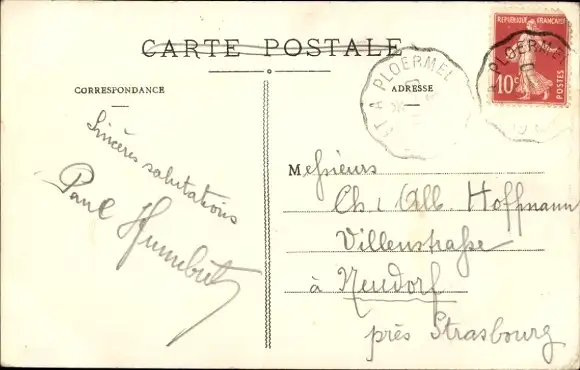 CARTE POSTALE
CORRESPONDANCE
ADRESSE
A PLOERMEL
REPUBLIQUE FRANÇAISE
10c
POSTES
A PLOERMEL
Sincères salutations
Paul
Meßieurs
Ch. & Alb. Hoffmann
Villenstraße
à Neudorf
près Strasbourg